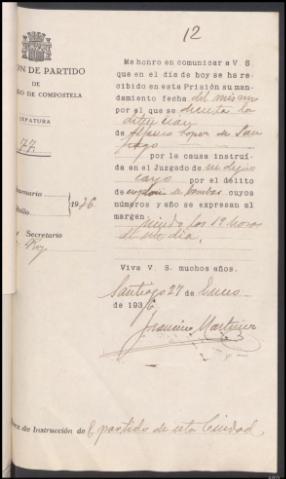 12
ON DE PARTIDO
DE
GO DE COMPOSTELA
EFATURA
77
Me honro en comunicar a V S.
que en el día de hoy se ha re-
cibido en esta Prisión su man-
damiento fecha del mismo
por el que se decreta la
detención
de López de San
por la causa instruí-
da en el Juzgado de su digno
cargo por el delito
de de bombas, cuyos
números y año se expresan al
margen
Siendo las 19 horas
del mismo día.
1936
Secretario
Viva V. S. muchos años.
Santiago 27 de Enero
de 1936
Francisco Martínez
de Instrucción de partido de esta Ciudad